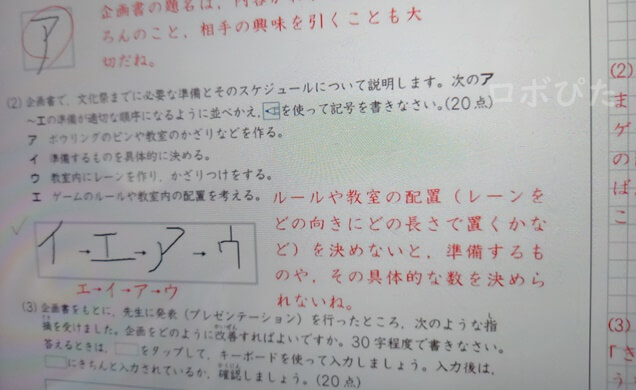 ア
企画書の題名は、内容が
ろんのこと、相手の興味を引くことも大
切だね。
(2) 企画書で、文化祭までに必要な準備とそのスケジュールについて説明します。次のア
～エの準備が適切な順序になるように並べかえ、を使って記号を書きなさい。(20点)
ア ボウリングのピンや教室のかざりなどを作る。
イ 準備するものを具体的に決める。
ウ 教室内にレーンを作り、かざりつけをする。
エ ゲームのルールや教室内の配置を考える。
ルールや教室の配置（レーンを
どの向きにどの長さで置くかな
ど）を決めないと、準備するも
のや、その具体的な数を決めら
れないね。
イ→エ→ア→ウ
エ→イ→ア→ウ
(3) 企画書をもとに、先生に発表（プレゼンテーション）を行ったところ、次のような指
摘を受けました。企画をどのように改善すればよいですか。30字程度で書きなさい。
答えるときは、をタップして、キーボードを使って入力しましょう。入力後は、
にきちんと入力されているか、確認しましょう。(20点)
ロボぴた
(2)
ま
ゲ
の
ば
こ
(3)
「き